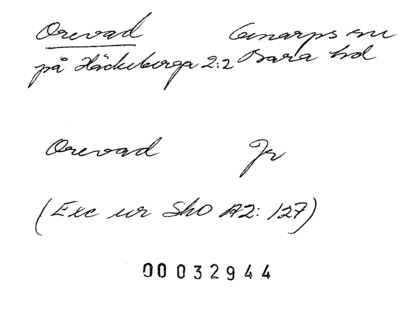 Orevad Genarps sn
på Häckeberga 2:2 Bara hd
Orevad Jr
(Exc ur ShO A2: 127)
00032944